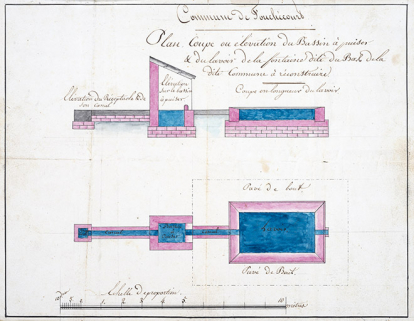 Commune de Fouchecourt
Plan Coupe et élévation du Bassin à puiser
& du lavoir de la fontaine dite du Bas, de la
dite Commune à reconstruire
Coupe en longueur du lavoir
Elévation
sur le bassin
à puiser
Elévation du Réceptacle & de
son canal
Pavé de bout
Canal
Canal
Lavoir
Pavé de Bout
Echelle de proportion
10 5 0 1 2 3 4 5 10 mètres